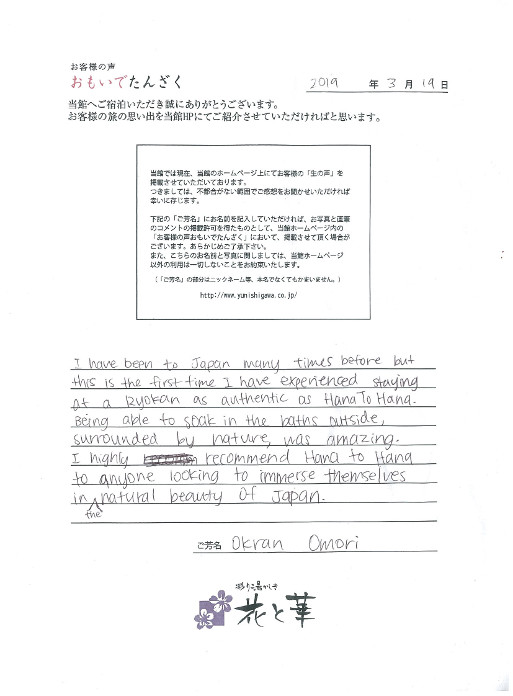 お客様の声
おもいでたんざく
2019 年 3 月 19 日
当館へご宿泊いただき誠にありがとうございます。
お客様の旅の思い出を当館HPにてご紹介させていただければと思います。
当館では現在、当館のホームページ上にてお客様の「生の声」を
掲載させていただいております。
つきましては、不都合がない範囲でご感想をお聞かせいただければ
幸いに存じます。
下記の「ご芳名」にお名前を記入していただければ、お写真と直筆
のコメントの掲載許可を得たものとして、当館ホームページ内の
「お客様の声おもいでたんざく」において、掲載させて頂く場合が
ございます。あらかじめご了承下さい。
また、こちらのお名前と写真に関しましては、当館ホームページ
以外の利用は一切しないことをお約束いたします。
(「ご芳名」の部分はニックネーム等、本名でなくてもかまいません。)
http://www.yunishigawa.co.jp/
I have been to Japan many times before but
this is the first time I have experienced staying
at a Ryokan as authentic as HanaToHana.
Being able to soak in the baths outside,
surrounded by nature, was amazing.
I highly recommend Hana to Hana
to anyone looking to immerse themselves
in the natural beauty of Japan.
ご芳名 Okran Omori
花と華